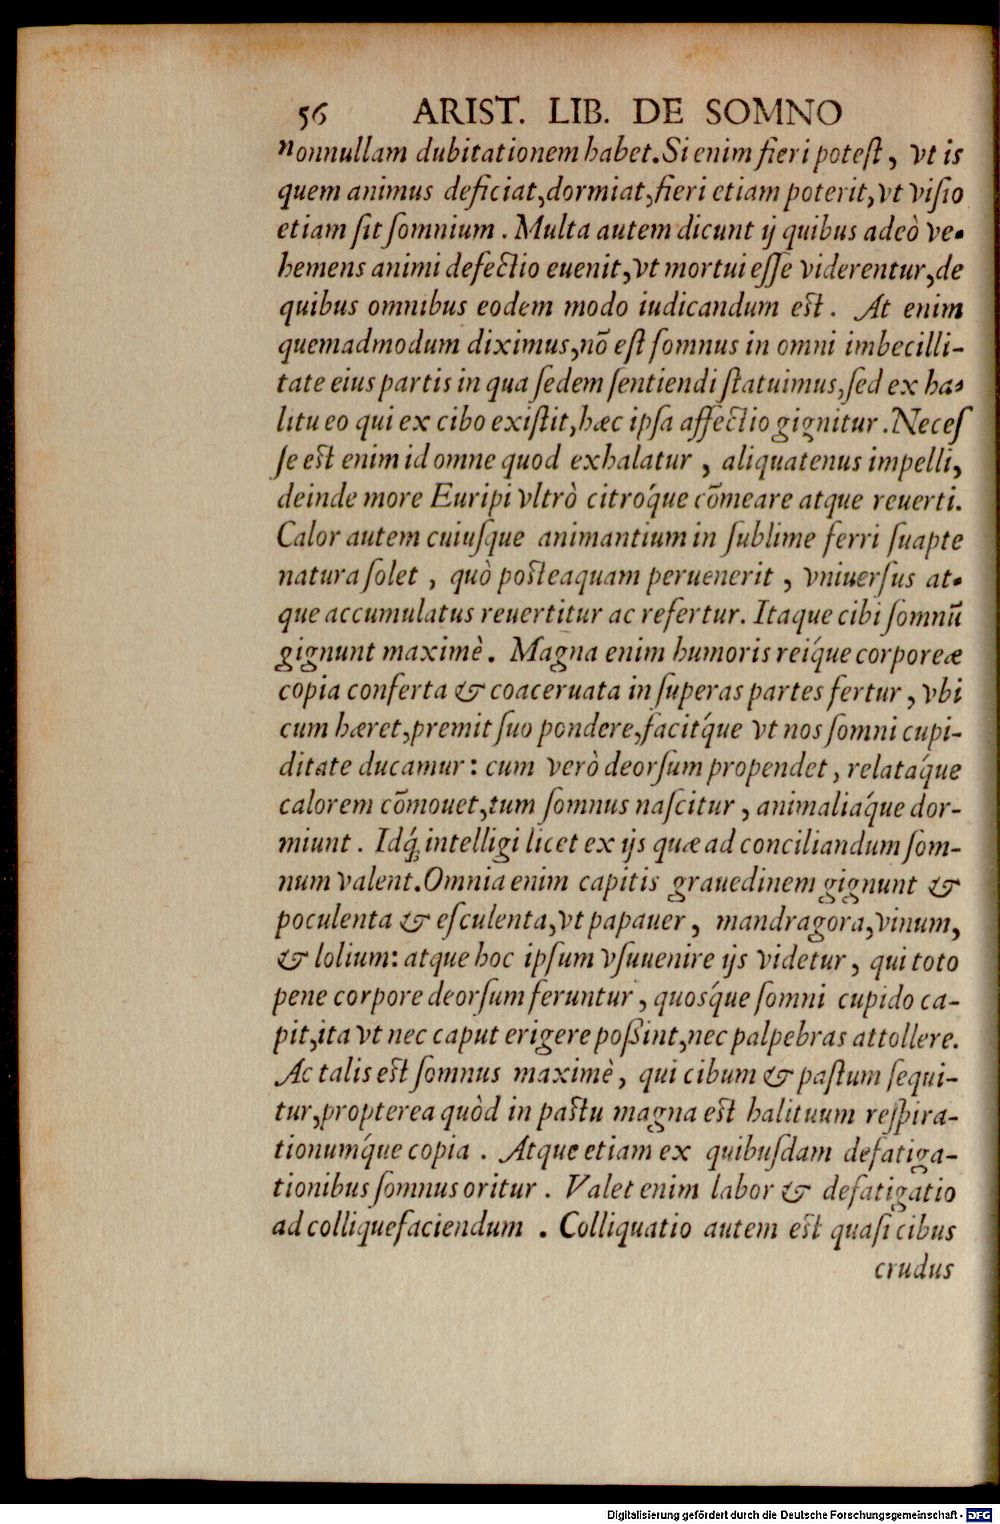 56 ARIST. LIB. DE SOMNO
nonnullam dubitationem habet. Si enim fieri poteſt, vt is
quem animus deficiat, dormiat, fieri etiam poterit, vt viſio
etiam ſit ſomnium. Multa autem dicunt ij quibus adeò ve-
hemens animi defectio euenit, vt mortui eſſe viderentur, de
quibus omnibus eodem modo iudicandum eſt. At enim
quemadmodum diximus, nō eſt ſomnus in omni imbecilli-
tate eius partis in qua ſedem ſentiendi ſtatuimus, ſed ex ha-
litu eo qui ex cibo exiſtit, hæc ipſa affectio gignitur. Neceſ
ſe eſt enim id omne quod exhalatur, aliquatenus impelli,
deinde more Euripi vltrò citróque cōmeare atque reuerti.
Calor autem cuiuſque animantium in ſublime ferri ſuapte
natura ſolet, quò poſteaquam peruenerit, vniuerſus at-
que accumulatus reuertitur ac refertur. Itaque cibi ſomnū
gignunt maximè. Magna enim humoris reiq́ue corporeæ
copia conferta & coaceruata in ſuperas partes fertur, vbi
cum hæret, premit ſuo pondere, facitq́ue vt nos ſomni cupi-
ditate ducamur: cum verò deorſum propendet, relataq́ue
calorem cōmouet, tum ſomnus naſcitur, animaliaq́ue dor-
miunt. Idq́; intelligi licet ex ijs quæ ad conciliandum ſom-
num valent. Omnia enim capitis grauedinem gignunt &
poculenta & eſculenta, vt papauer, mandragora, vinum,
& lolium: atque hoc ipſum vſuuenire ijs videtur, qui toto
pene corpore deorſum feruntur, quosq́ue ſomni cupido ca-
pit, ita vt nec caput erigere poßint, nec palpebras attollere.
Ac talis eſt ſomnus maximè, qui cibum & paſtum ſequi-
tur, propterea quòd in paſtu magna eſt halituum reſpira-
tionumq́ue copia. Atque etiam ex quibuſdam defatiga-
tionibus ſomnus oritur. Valet enim labor & defatigatio
ad colliquefaciendum. Colliquatio autem eſt quaſi cibus
crudus
Digitalisierung gefördert durch die Deutsche Forschungsgemeinschaft - DFG